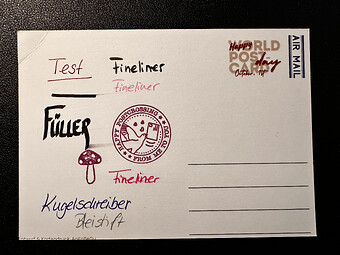 Test
Fineliner
Fineliner
Füller
HAPPY POSTCROSSING
FROM ME TO YOU
Fineliner
Kugelschreiber
Bleistift
Happy
WORLD
POST
CARD
day
October, 1st
AIR MAIL